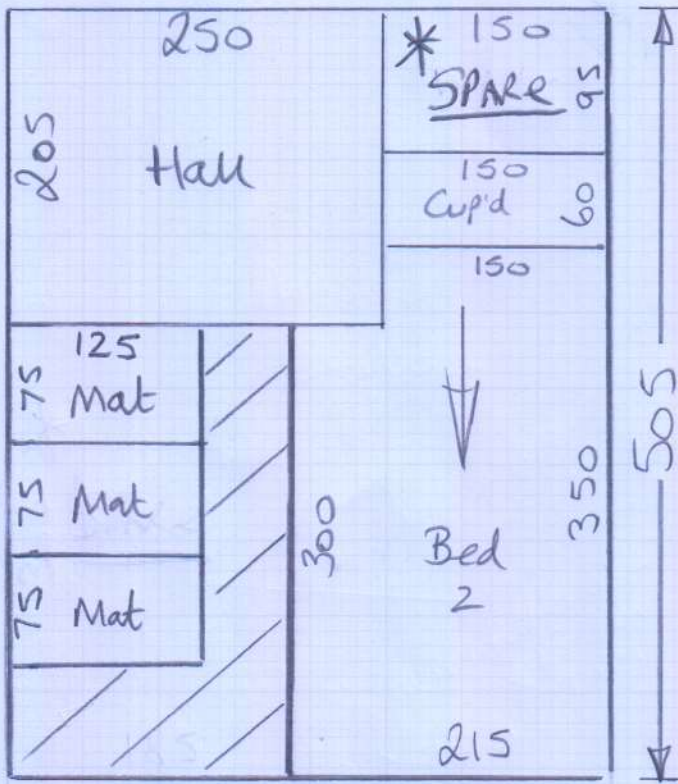 250
205
Hall
* 150
SPARe
95
150
Cup'd
60
150
125
75
Mat
75
Mat
75
Mat
300
Bed
2
350
505
215